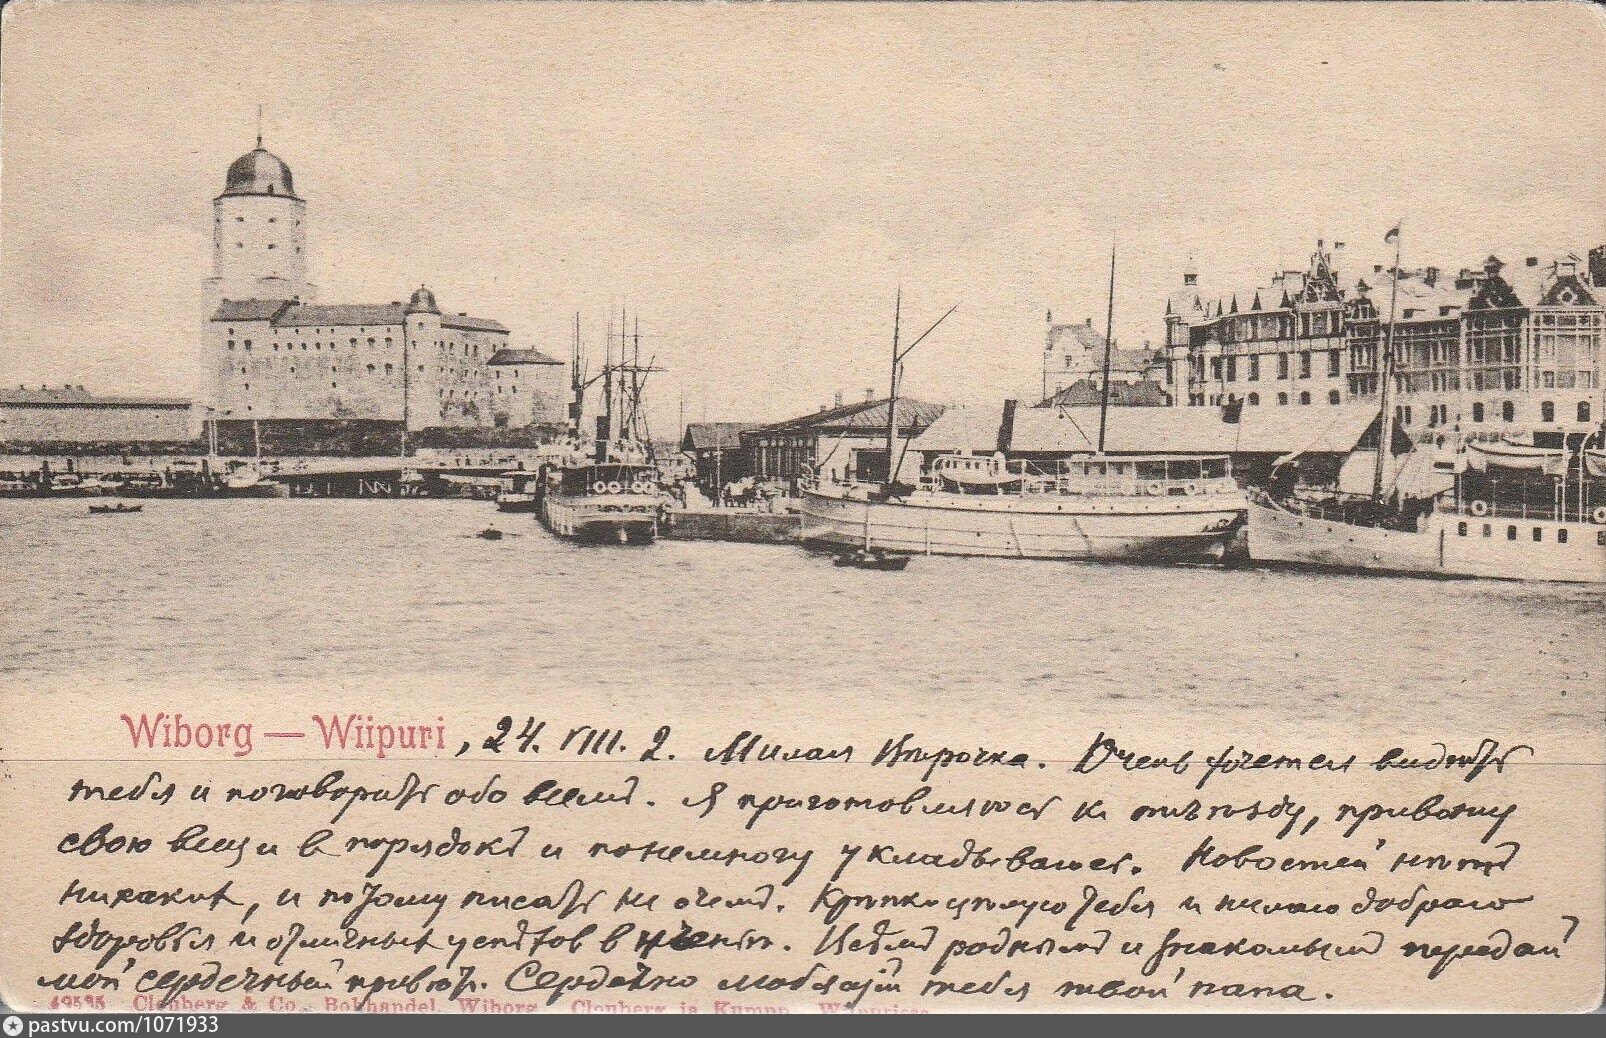 Wiborg — Wiipuri, 24. VIII. 2. Милая Вѣрочка. Очень хочется видѣть
тебя и поговорить обо всемъ. Я приготовляюсь къ отъѣзду, привожу
свои вещи в порядокъ и понемногу укладываюсь. Новостей нѣтъ
никакихъ, и потому писать не о чемъ. Крѣпко цѣлую тебя и желаю добраго
здоровья и отличныхъ успѣховъ в ученьи. Всѣмъ роднымъ и знакомымъ передай
мой сердечный привѣтъ. Сердечно любящій тебя твой папа.
49535 Clouberg & Co., Bokhandel, Wiborg. Clouberg ja Kumpp. Wiipurissa
pastvu.com/1071933